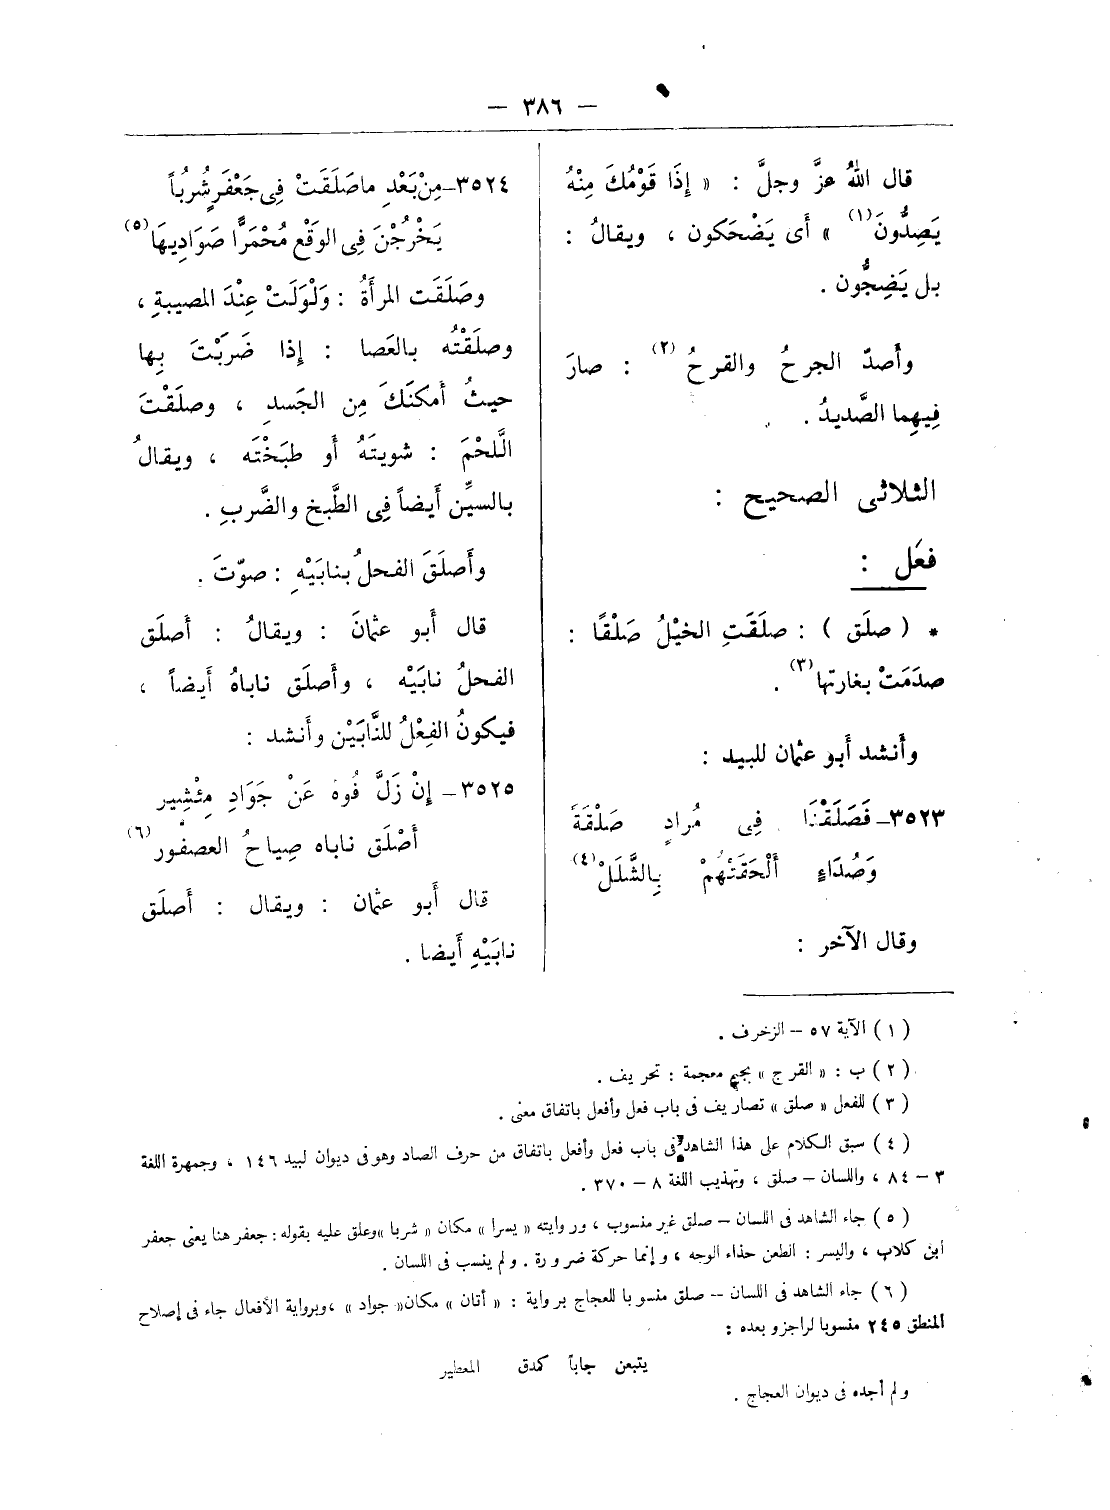 — ٣٨٦ —
قال اللهُ عزَّ وجلَّ : « إِذَا قَوْمُكَ مِنْهُ
يَصِدُّونَ(١) » أَى يَضْحَكون ، ويقالُ :
بل يَضِجُّون .
وأَصدّ الجرحُ والقرحُ (٢) : صارَ
فِيهِما الصَّديدُ .
الثلاثى الصحيح :
فعَل :
* ( صلَق ) : صلَقَتِ الخيْلُ صَلْقًا :
صدَمَتْ بغارتها(٣) .
وأَنشد أَبو عثمان للبيد :
٣٥٢٣ـ فَصَلَقْنَا فِى مُرادٍ صَلْقَةً
وَصُدَاءٍ أَلْحَقَتْهُمْ بِالشَّلَلْ(٤)
وقال الآخر :
٣٥٢٤ـ مِنْ بَعْدِ ماصَلَقَتْ فِى جَعْفَرٍ شُرْباً
يَخْرُجْنَ فِى الوَقْعِ مُحْمَرًّا صَوَادِيهَا(٥)
وصَلَقَت المرأَةُ : وَلْوَلَتْ عِنْدَ المصيبةِ ،
وصلَقْتُه بالعَصا : إِذا ضَرَبْتَ بِها
حيثُ أَمكنَكَ مِن الجَسدِ ، وصلَقْتَ
الَّلحْمَ : شويتَهُ أَو طبَخْتَه ، ويقالُ
بالسيِّن أَيضاً فِى الطَّبخ والضَّربِ .
وأَصلَقَ الفحلُ بنابَيْهِ : صوّتَ .
قال أَبو عثمانَ : ويقالُ : أَصلَق
الفحلُ نابَيْه ، وأَصلَق ناباهُ أَيضاً ،
فيكونُ الفِعْلُ للنَّابَيْن وأَنشد :
٣٥٢٥ـ إِنْ زَلَّ فُوهُ عَنْ جَوَادِ مِئْشِيرِ
أَصْلَق ناباه صِياحُ العصفور(٦)
قال أَبو عثمان : ويقال : أَصلَق
نابَيْهِ أَيضا .
( ١ ) الآية ٥٧ – الزخرف .
( ٢ ) ب : « القرج » بجيم معجمة : تحريف .
( ٣ ) للفعل « صلق » تصاريف فى باب فعل وأفعل باتفاق معنى .
( ٤ ) سبق الكلام على هذا الشاهد فى باب فعل وأفعل باتفاق من حرف الصاد وهو فى ديوان لبيد ١٤٦ ، وجمهرة اللغة
٣ – ٨٤ ، واللسان – صلق ، وتهذيب اللغة ٨ – ٣٧٠ .
( ٥ ) جاء الشاهد فى اللسان – صلق غير منسوب ، وروايته « يسرا » مكان « شربا » وعلق عليه بقوله : جعفر هنا يعنى جعفر
ابن كلاب ، واليسر : الطعن حذاء الوجه ، وإنما حركة ضرورة . ولم ينسب فى اللسان .
( ٦ ) جاء الشاهد فى اللسان – صلق منسوبا للعجاج برواية : « أتان » مكان « جواد » ، وبرواية الأفعال جاء فى إصلاح
المنطق ٢٤٥ منسوبا لراجز وبعده :
يتبعن جاباً كمدق المعطير
ولم أجده فى ديوان العجاج .